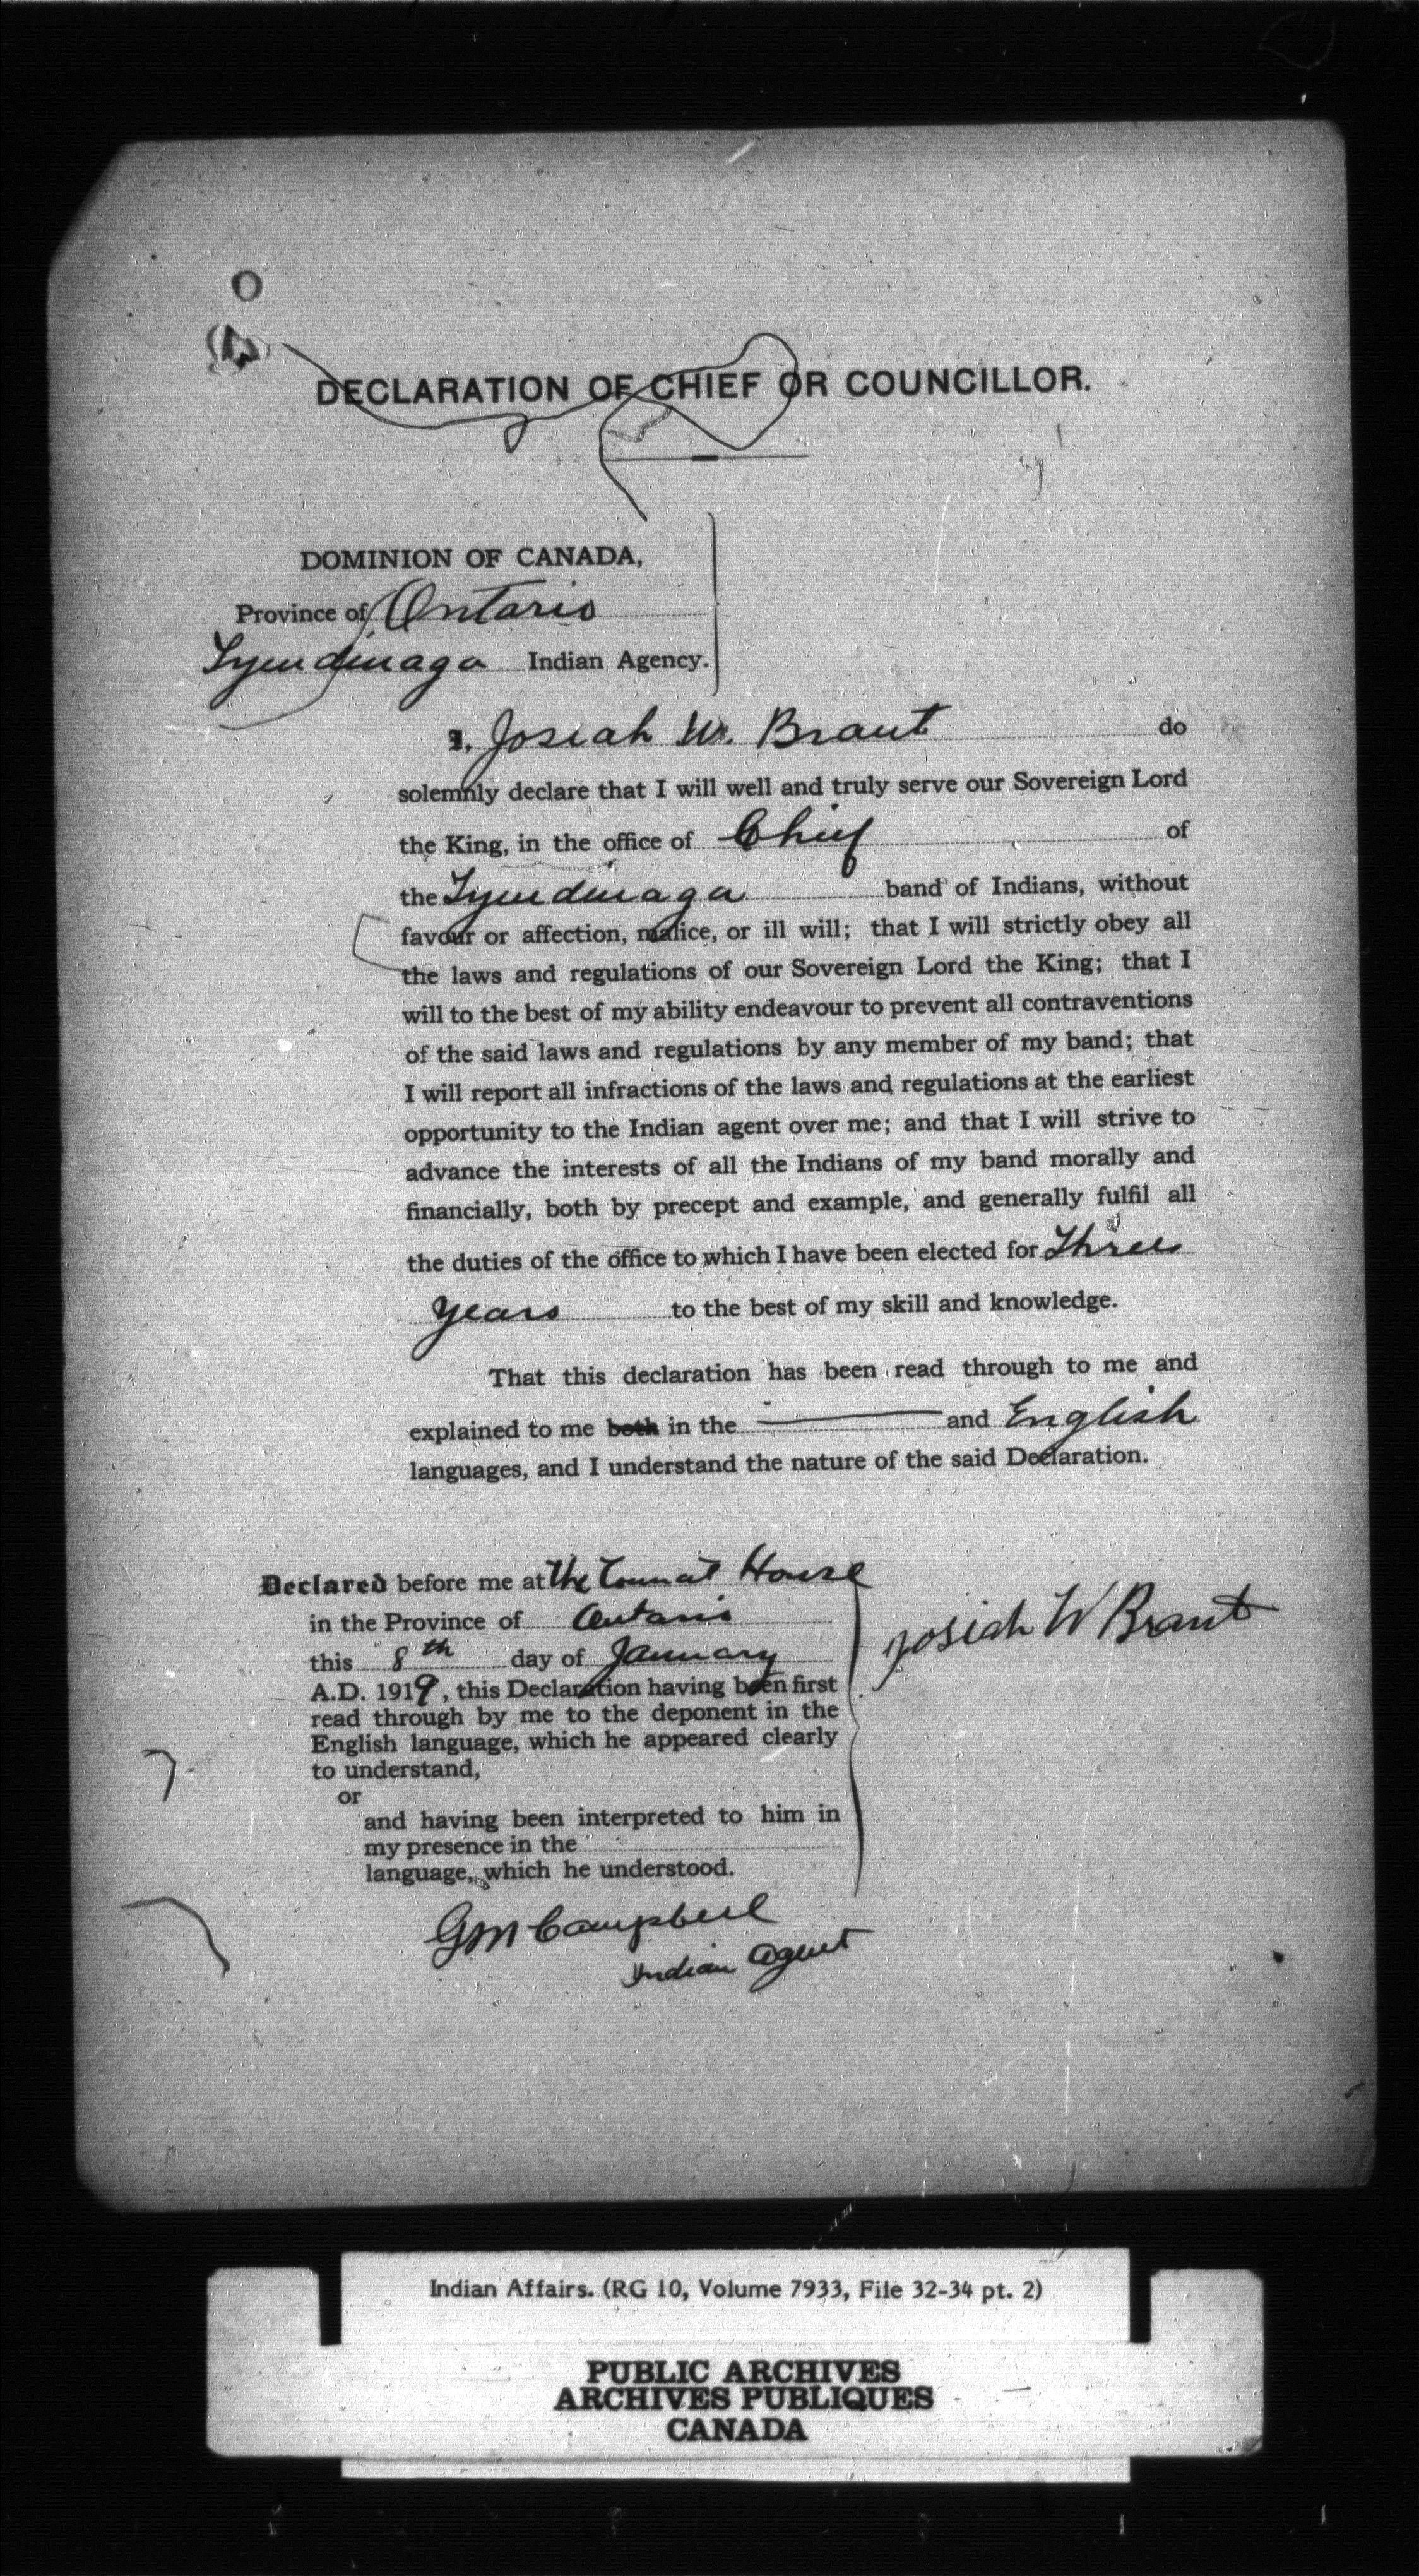 DECLARATION OF CHIEF OR COUNCILLOR.
DOMINION OF CANADA,
Province of Ontario
Tyendinaga Indian Agency.
I, Josiah W. Brant do
solemnly declare that I will well and truly serve our Sovereign Lord
the King, in the office of Chief of
the Tyendinaga band of Indians, without
favour or affection, malice, or ill will; that I will strictly obey all
the laws and regulations of our Sovereign Lord the King; that I
will to the best of my ability endeavour to prevent all contraventions
of the said laws and regulations by any member of my band; that
I will report all infractions of the laws and regulations at the earliest
opportunity to the Indian agent over me; and that I will strive to
advance the interests of all the Indians of my band morally and
financially, both by precept and example, and generally fulfil all
the duties of the office to which I have been elected for Three
years to the best of my skill and knowledge.
That this declaration has been read through to me and
explained to me both in the — and English
languages, and I understand the nature of the said Declaration.
Declared before me at the Council House
in the Province of Ontario
this 8th day of January
A.D. 1919, this Declaration having been first
read through by me to the deponent in the
English language, which he appeared clearly
to understand,
or
and having been interpreted to him in
my presence in the
language, which he understood.
Josiah W Brant
GM Campbell
Indian Agent
Indian Affairs. (RG 10, Volume 7933, File 32-34 pt. 2)
PUBLIC ARCHIVES
ARCHIVES PUBLIQUES
CANADA